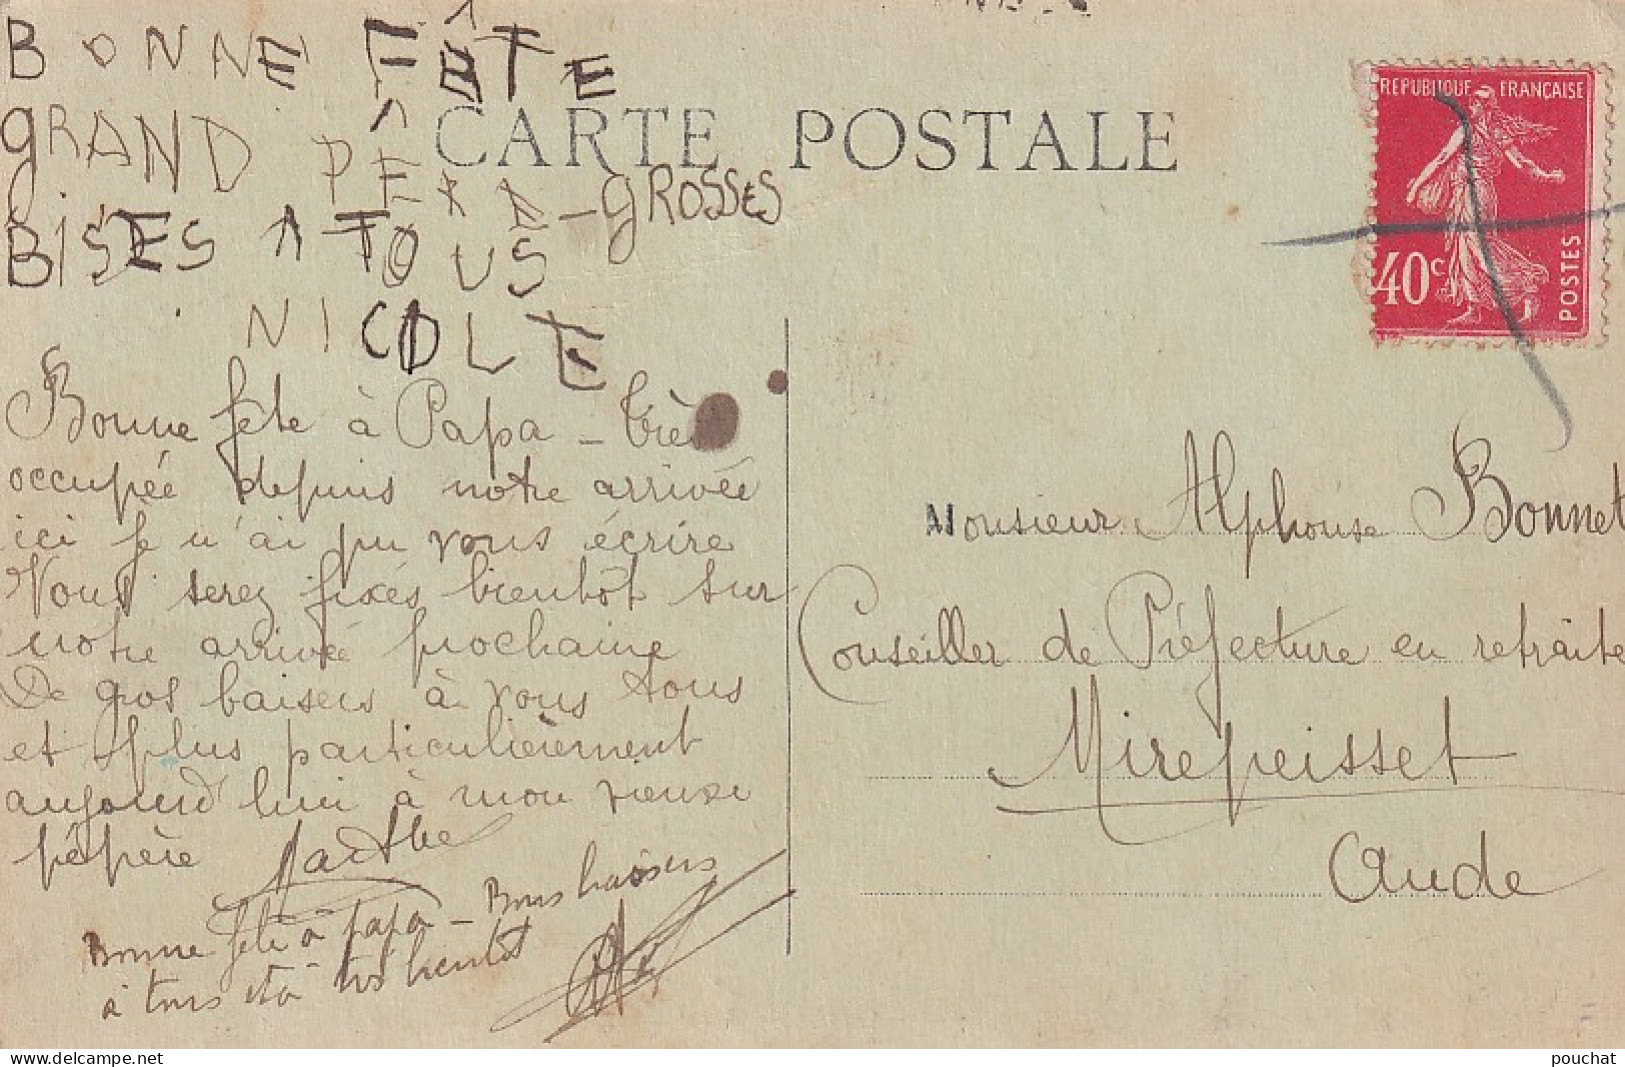 BONNE FÊTE
GRAND PÊRE - GROSSES
BISES A TOUS
NICOLE
CARTE POSTALE
REPUBLIQUE FRANÇAISE
40c
POSTES
Bonne fête à Papa - Très
occupée depuis notre arrivée
ici je n'ai pu vous écrire
Vous serez fixés bientôt sur
notre arrivée prochaine
De gros baisers à vous tous
et plus particulièrement
aujourd'hui à mon vieux
pépère Marthe
Bonne fête à papa - Bons baisers
à tous et à très bientôt
Monsieur Alphonse Bonnet
Conseiller de Préfecture en retraite
Mirepeisset
Aude
www.delcampe.net
pouchat